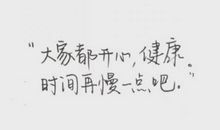 “大家都开心,健康。
时间再慢一点吧。”